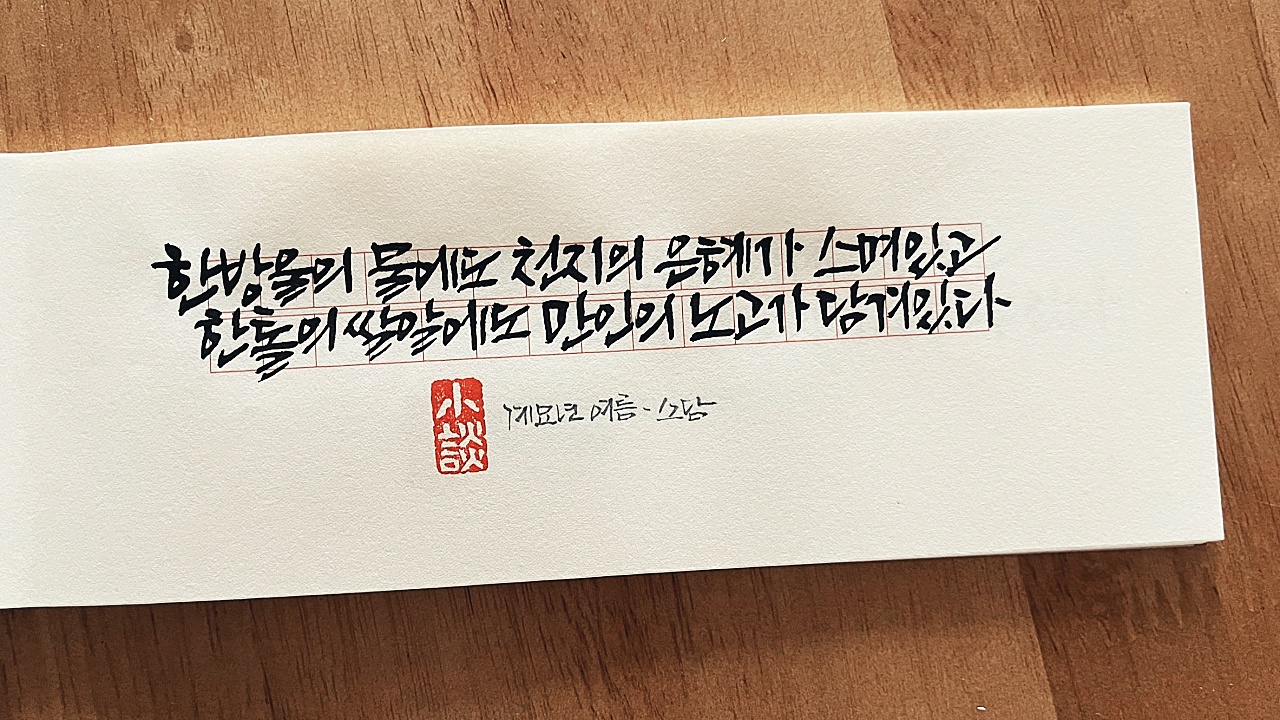 한방울의 물에도 천지의 은혜가 스며있고
한톨의 쌀알에도 만인의 노고가 담겨있다
小談
계묘년 여름 - 소담